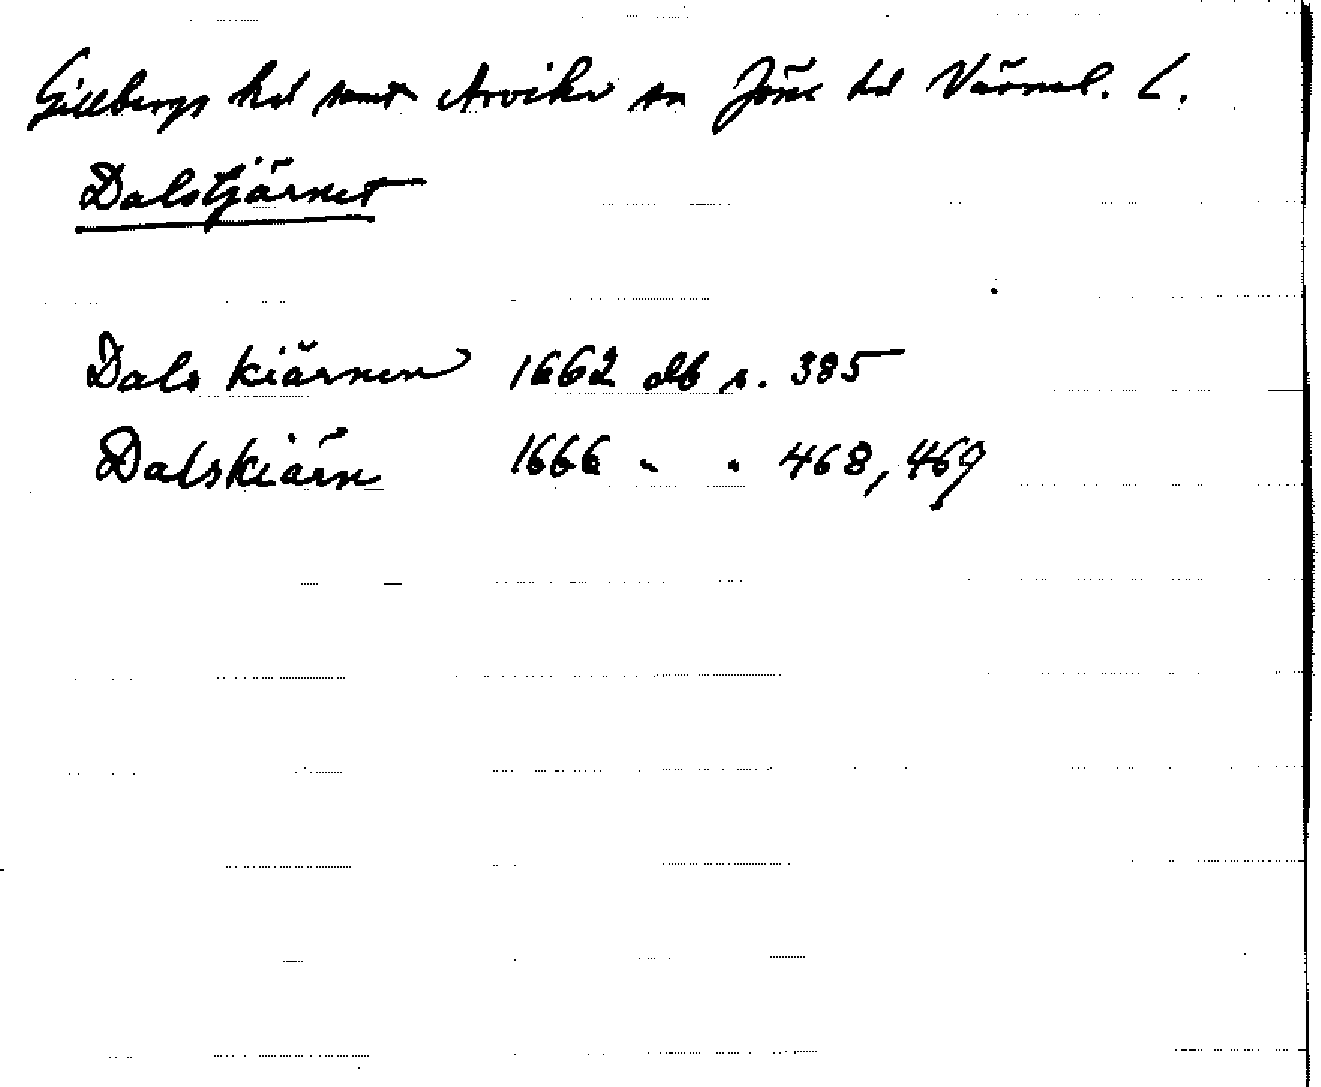 Gillbergs hd samt Arvika sn Jösse hd Värml. L.
Dalstjärnet
Dals kiärnen 1662 dlb s. 385
Dalskiärn 1666 " " 468, 469